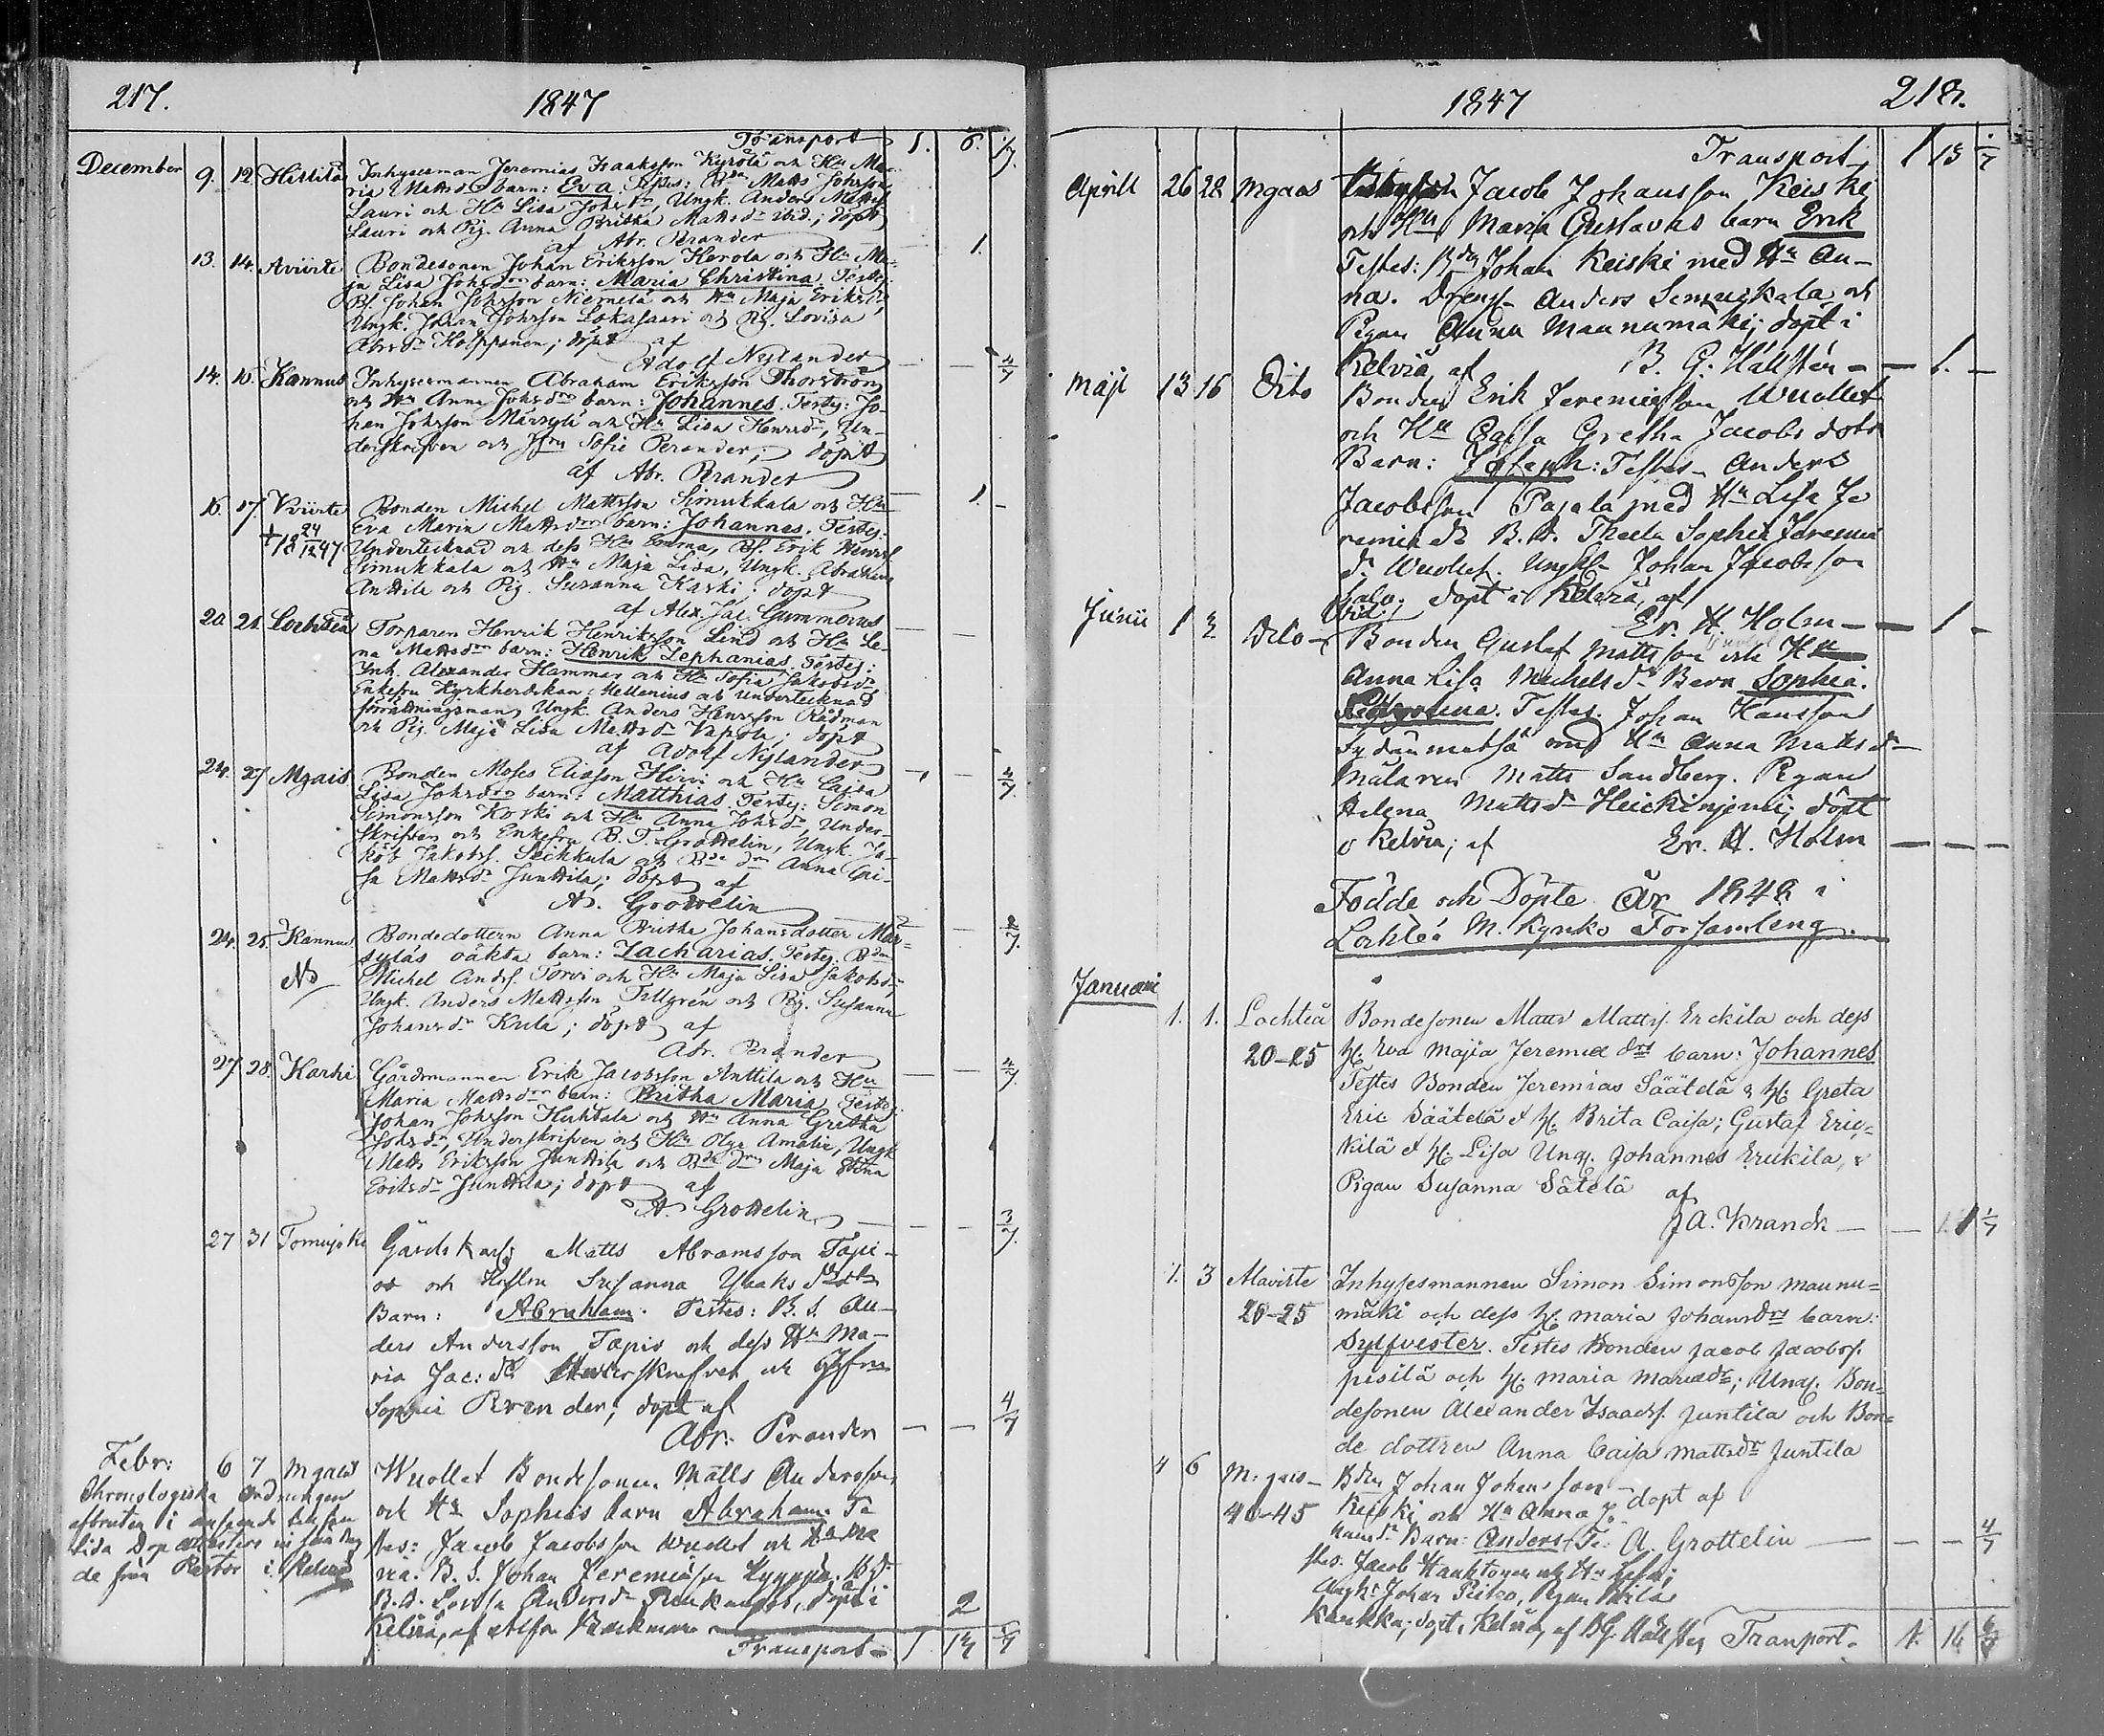 217.
1847
Transport 1. 6. 1/7
December 9. 12. Hillilä Inhysesman Jeremias Isaaksson Kyrölä och Hu Ma-
ria Mattsdr barn: Eva. Testes: Bdn Matts Johnson
Lauri och Hu Lisa Johsdr, Ungk. Anders Mattss.
Lauri och Pig. Anna Britha Mattsdr ibid.; döpt
af Abr. Perander 1.
13. 14. Aviirte Bondesonen Johan Eriksson Kerola och Hu Ma-
ja Lisa Johsdrs barn: Maria Christina. Testes:
Bs. Johan Johsson Niemelä och Hu Maja Eriksdr,
Ungk. Johan Johsson Lokasaari och Pig. Lovisa
Abrsdr Holppanen; döpt af
Adolf Nylander 4/7
14. 15. Kannus Inhysesmannen Abraham Eriksson Thorström
och Hu Anna Johsdrs barn: Johannes. Testes: Jo-
han Johsson Märsylä och Hu Lisa Henrsdr, Un-
derskrifven och Jfru Sofie Perander; döpt
af Abr. Perander 1. -
16. 17. Viirte Bonden Michel Mattsson Simukkala och Hu
Eva Maria Mattsdrs barn: Johannes. Testes:
† 18 24/12 47 Undertecknad och dess Hu Emma, Bs. Erik Henrss.
Simukkala och Hu Maja Lisa, Ungk. Abraham
Anttila och Pig. Susanna Karhi; döpt
af Alex. Jac. Gummerus
20. 21. Lochteå Torparen Henrik Henriksson Lind och Hu Le-
na Mattsdrs barn: Henrik Zephanias. Testes:
Inh. Alexander Hammar och Hu Sofia Jakobsdr
Enkefru Kyrkherdskan Mellenius och undertecknad
förrättningsman, Ungk. Anders Henrsson Rådman
och Pig. Maja Lisa Mattsdr Vapola; döpt
af Adolf Nylander
24. 27 Mgais Bonden Moses Eliasson Hirvi och Hu Caisa 4/7.
Lisa Johsdrs barn: Matthias. Testes: Simon
Simonsson Koski och Hu Anna Johsdr, Under-
skrifven och Enkefru B. T. Grottelin, Ungk. Ja-
kob Jakobss. Seikkula och Bde dr Anna Cai-
sa Mattsdr Junttila; döpt af
A. Grottelin
24. 25. Kannus Bondedottern Anna Britha Johansdotter Mär- 2/7.
syläs oäkta barn: Zacharias. Testes: Bdn
Nb Michel Andss. Torvi och Hu Maja Lisa Jakobsdr,
Ungk. Anders Mattsson Tillgrén och Pig. Susanna
Johansdr Kula; döpt af
Abr. Perander
27 28. Karhi Gårdsmannen Erik Jacobsson Anttila och Hu 4/7.
Maria Mattsdrs barn: Britha Maria. Testes:
Johan Johsson Huhtala och Hu Anna Gretha
Johsdr, Underskrifven och Hu Olga Amalie, Ungk
Matts Eriksson Junttila och Bde drn Maja Stina
Eriksdr Junttila; döpt af
A. Grottelin 3/7.
27 31 Tomujoki Gårdskarln Matts Abramsson Tapi-
os och Hustru Susanna Isaks Dotr
Barn: Abraham. Testes: B. S. An-
ders Andersson Tapio och dess Hu Ma-
ria Jac: dr Underskrifvet och Jfru
Sophie Perander; döpt af 4/7
Abr: Perander
Febr: 6 7 Mgais Wuollet Bondesonen Matts Andersson
Chronologiska Ordningen och Hu Sophias barn Abraham. Te
afbruten i anseende till sen stes: Jacob Jacobsson Wuollet och Hu Ma
tida Dop attesters insändan ria. B. S. Johan Jeremiasson
de från Pastor i Kelviå B. D. Lovisa Andersdr döpt i 2
Kelviå, af Alfr. Backman
Transport 1 13 1/7
1847
218.
Transport 1 13 1/7
Aprill 26 28 Mgaas Jacob Johansson Keiski
och Hu Maria Gustavas barn Erik
Testes: Bdn Johan Keiski med Hu An-
na. Dreng- Anders Simukkala och
Pigan Anna Maunumäki; döpt i
Kelviå af B. G. Hällstén - 1. -
Maji 13 16 Dito Bonden Erik Jeremiasson Wuollet
och Hu Caisa Gretha Jacobs doter
Barn: Joseph: Testes- Anders
Jacobsson Pajala med Hu Lisa Je
remiæ dr B. D. Thecla Sophia Jeremiæ
dr Wuollet. Ungk- Johan Jacobsson
Salo; döpt i Kelviå, af
Er. A. Holm - 1 -
Junii 1 2 Dito - Bonden Gustaf Mattsson och Hu
Anna Lisa Michelsdr Barn Sophia.
Testes. Johan Hansson
Sydänmetsä med Hu Anna Mattsdr
Målaren Matts Sandberg. Pigan
Helena Mattsdr Heickinjemi; döpt
i Kelviå; af Er. A. Holm
Födde och Döpte År 1848 i
Lochteå M. Kyrko Församling.
Januari
1. 1. Lochteå Bondesonen Matts Mattss. Erckilä och dess
20-25 H. Eva Majia Jeremiæ drs barn: Johannes
Testes Bonden Jeremias Säätelä & H. Greta
Eric Säätelä & H. Brita Caisa; Gustaf Eric-
kilä & H. Lisa Ungk. Johannes Erickilä, &
Pigan Susanna Sätelä af
J A. Krank 1. 1 1/7
1. 3 Maviste Inhysesmannen Simon Simonsson Maunu=
20-25 mäki och dess H. Maria Johansdrs barn:
Sylfvester. Testes Bonden Jacob Jacobss.
Pisilä och H. Maria ; Ungk. Bon-
desonen Alexander Isaacss. Juntila och Bon=
de dottren Anna Caisa Mattsdr Juntila
döpt af
A. Grottelin 4/7
4 6 M: gais- Bdn Johan Johansson
40-45 Keiski och Hu Anna Jo-
hansdr Barn: Anders. Te-
stes: Jacob och Hu Lisa;
Ungk: Johan Pigan
döpt i Kelviå, af BG. Hällstén
Tranport. 1. 16 6/7